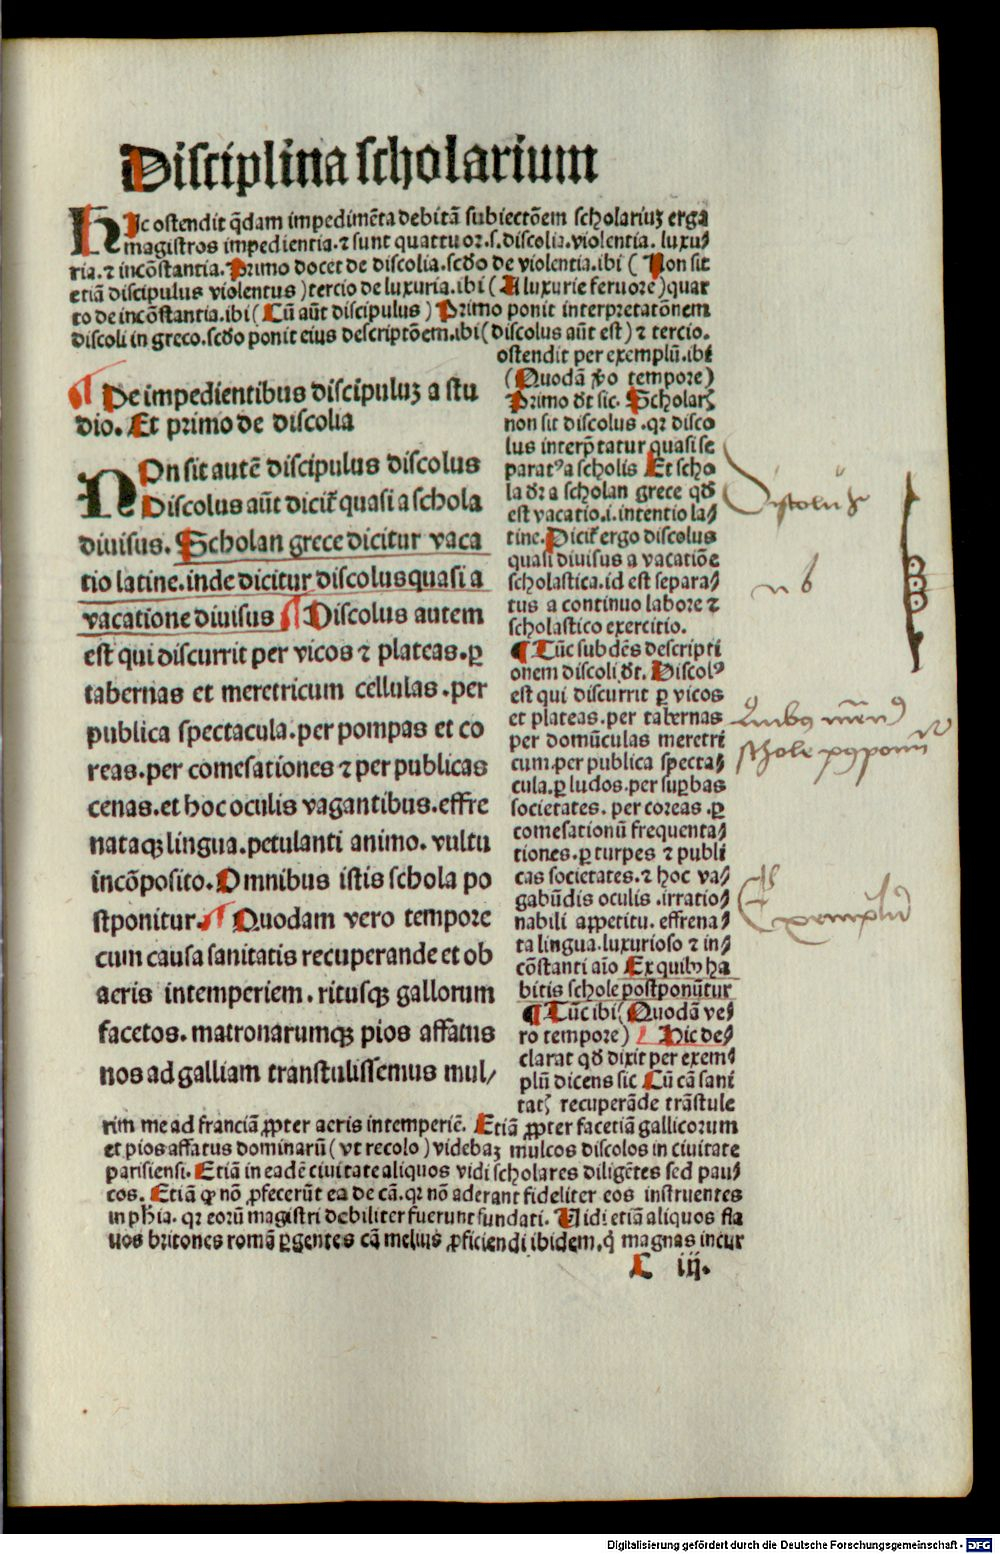 Disciplina scholarium
HIc ostendit q̄dam impedimēta debitā subiectōem scholariuʒ erga
magistros impedientia.⁊ sunt quattuor.s.discolia.violentia. luxu⸗
ria.⁊ incōstantia. Primo docet de discolia.scd̓o de violentia.ibi ( Non sit
etiā discipulus violentus ) tercio de luxuria.ibi ( A luxurie feruore )quar
to de incōstantia.ibi ( Cū aūt discipulus ) Primo ponit interpretatōnem
discoli in greco.scd̓o ponit eius descriptōem.ibi ( discolus aūt est ) ⁊ tercio.
ostendit per exemplū.ibi
( Quodā v̓o tempore )
¶ De impedientibus discipuluʒ a stu
dio. Et primo de discolia
NOn sit autē discipulus discolus
Discolus aūt dicit̄ quasi a schola
diuisus. Scholan grece dicitur vaca
tio latine.inde dicitur discolus quasi a
vacatione diuisus ¶ Discolus autem
est qui discurrit per vicos ⁊ plateas.ꝑ
tabernas et meretricum cellulas.per
publica spectacula.per pompas et co
reas.per comesationes ⁊ per publicas
cenas.et hoc oculis vagantibus.effre
nataqꝫ lingua.petulanti animo. vultu
incōposito. Omnibus istis schola po
stponitur. ¶ Quodam vero tempore
cum causa sanitatis recuperande et ob
aeris intemperiem. ritusqꝫ gallorum
facetos. matronarumqꝫ pios affatus
nos ad galliam transtulissemus mul⸗
Primo dt̄ sic. Scholarꝭ
non sit discolus .qꝛ disco
lus interp̄tatur quasi se
paratꝰ a scholis Et scho
la dꝛ̄ a scholan grece qd̓
est vacatio.i.intentio la⸗
tine. Dicit̄ ergo discolus
quasi diuisus a vacatiōe
scholastica.id est separa⸗
tus a continuo labore ⁊
scholastico exercitio.
¶ Tūc sub dēs descripti
onem discoli dt̄. Discolꝰ
est qui discurrit ꝑ vicos
et plateas.per tabernas
per domūculas meretri
cum.per publica specta⸗
cula.ꝑ ludos.per suꝑbas
societates. per coreas .ꝑ
comesationū frequenta⸗
tiones.ꝑ turpes ⁊ publi
cas societates.⁊ hoc va⸗
gabūdis oculis .irratio⸗
nabili appetitu. effrena⸗
ta lingua.luxurioso ⁊ in⸗
cōstanti aīo Ex quibꝰ ha
bitis schole postponūtur
¶ Tūc ibi ( Quodā ve⸗
ro tempore ) Hic de⸗
clarat qd̓ dixit per exem⸗
plū dicens sic Cū cā sani
tatꝭ recuperāde trāstule
rim me ad franciā ꝓpter aeris intemperiē. Etiā ꝓpter facetiā gallicorum
et pios affatus dominarū ( vt recolo ) videbaʒ multos discolos in ciuitate
parisiensi. Etiā in eadē ciuitate aliquos vidi scholares diligētes sed pau⸗
cos. Etiā qꝫ nō ꝓfecerūt ea de cā.qꝛ nō aderant fideliter eos instruentes
in phīa. qꝛ eorū magistri debiliter fuerunt fundati. Vidi etiā aliquos fla
uos britones romā ꝑgentes cā melius ꝓficiendi ibidem.q̇ magnas incur
C iij.
nb
Exemplū
Digitalisierung gefördert durch die Deutsche Forschungsgemeinschaft - DFG